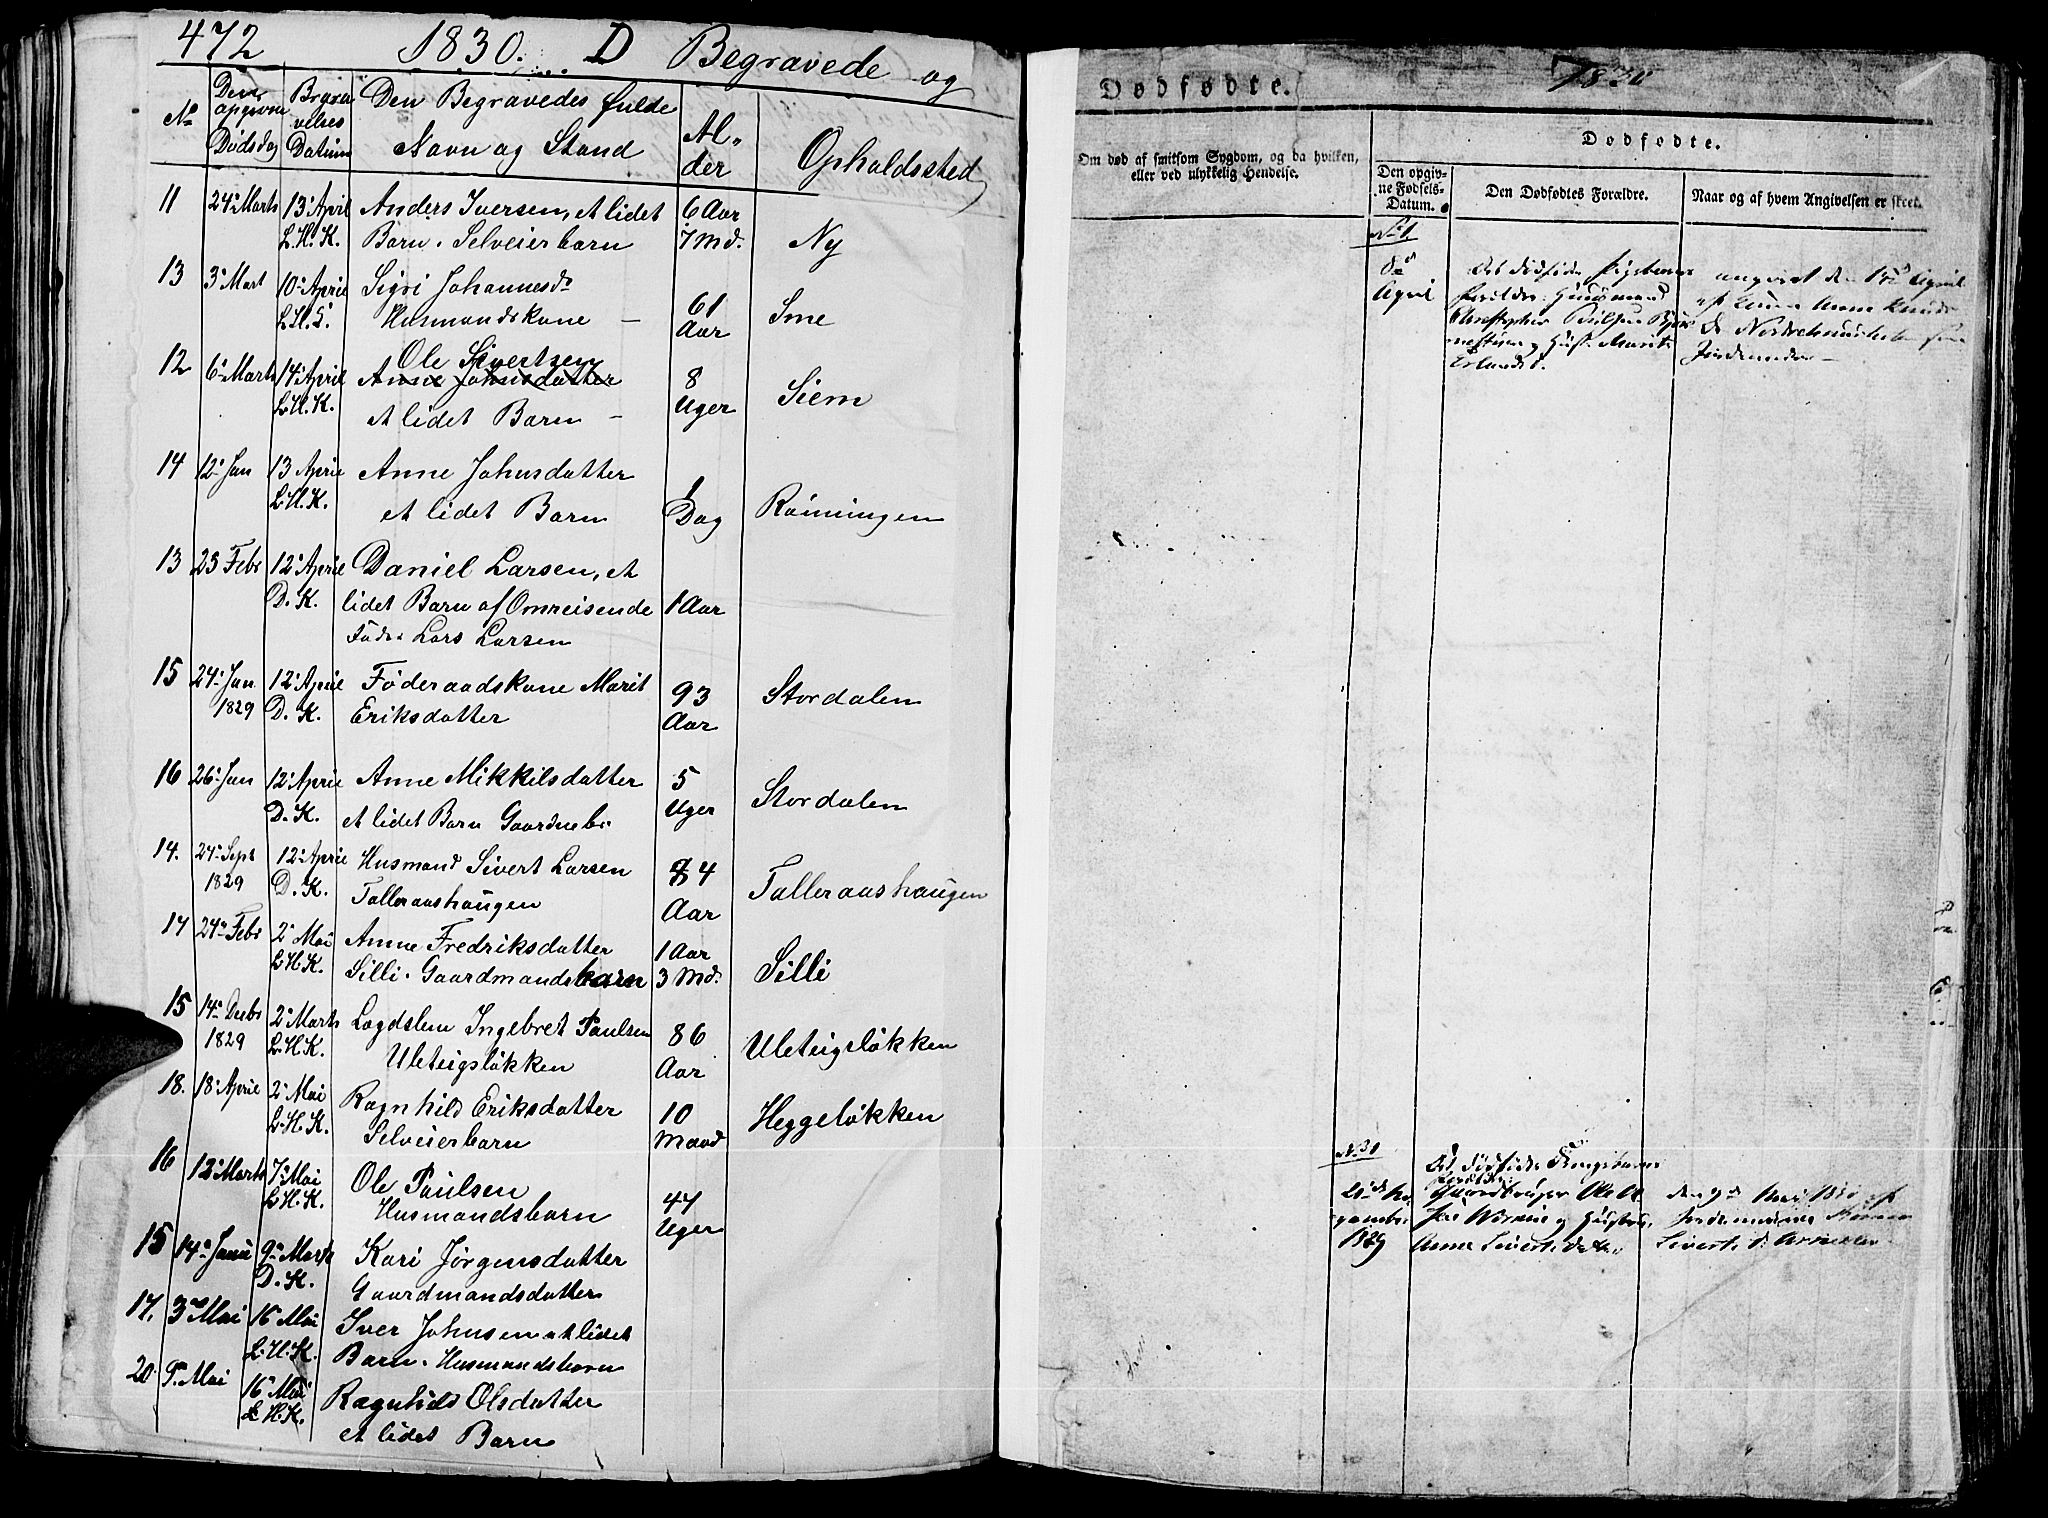 472 1830. D Begravede og
No Den opgivne Dødsdag Begravelses Datum Den Begravedes fulde Navn og Stand Alder Opholdssted
11 24. Marts 13. April Anders Iversen, et lidet 6 Aar
L.H.K. Barn. Selveierbarn 7 Md. Ny
13 3. Mart 10. April Sigri Johannesdr
L.H.L. Husmandskone — 61 Aar Sme
Ole Sivertsen
12 6. Marts 14. April Anne Johnsdatter 8
L.H.K. et lidet Barn — Uger Siem
14 12. Jan 13 April Anne Johnsdatter 1
L.H.K. et lidet Barn Dag Rønningen
13 23 Febr 12. April Daniel Larsen, et
D.K. lidet Barn af Omreisende 1 Aar
Fader Lars Larsen
15 24. Jan 12. April Føderaadskone Marit 93
1829 D.K. Eriksdatter Aar Stordalen
16 26. Jan 12. April Anne Mikkilsdatter 5
D.K. et lidet Barn Gaardmeb. Uger Stordalen
14. 24. Sept 12. April Husmand Sivert Larsen 84
1829 D.K. Talleraashaugen Aar Talleraashaugen
17 24. Febr 2. Mai Anne Fredriksdatter 1 Aar
L.H.K. Silli. Gaardmandsbarn 3 Md. Silli
15 14. Decbr 2. Marts Lægdslem Ingebret Paulsen 86
1829 L.H.K. Uleteigsløkken Aar Uleteigsløkken
18. 18. April 2. Mai Ragnhild Eriksdatter 10
L.H.K. Selveierbarn Maand Heggeløkken
16 12. Marts 7. Mai Ole Paulsen
L.H.K. Husmandsbarn 47 Uger
15 14. Janu 9. Marts Kari Jørgensdatter
D.K. Gaardmandsdatter
17. 3. Mai 16 Mai Iver Johnsen et lidet
L.H.K. Barn. Husmandsbarn
20. 9. Mai 16 Mai Ragnhild Olsdatter
L.H.K. et lidet Barn
Dødfødte. 1830
Om død af smitsom Sygdom, og da hvilken,
eller ved ulykkelig Hendelse.
Dødfødte.
Den opgiv-
ne Fødsels-
Datum.
Den Dødfødtes Forældre.
Naar og af hvem Angivelsen er skeet.
No 1.
8de April
Det dødfødte Pigebarns
Forældre: Huusmand
Christopher
Erlandsd.
angivet den April
af Anne
Jordemoder —
No 31
1829
Det dødfødte Drengebarns
Forældre:
Anne Sivertsdatter
den Mai 1830 af
Jordemoder
Sivertsd.